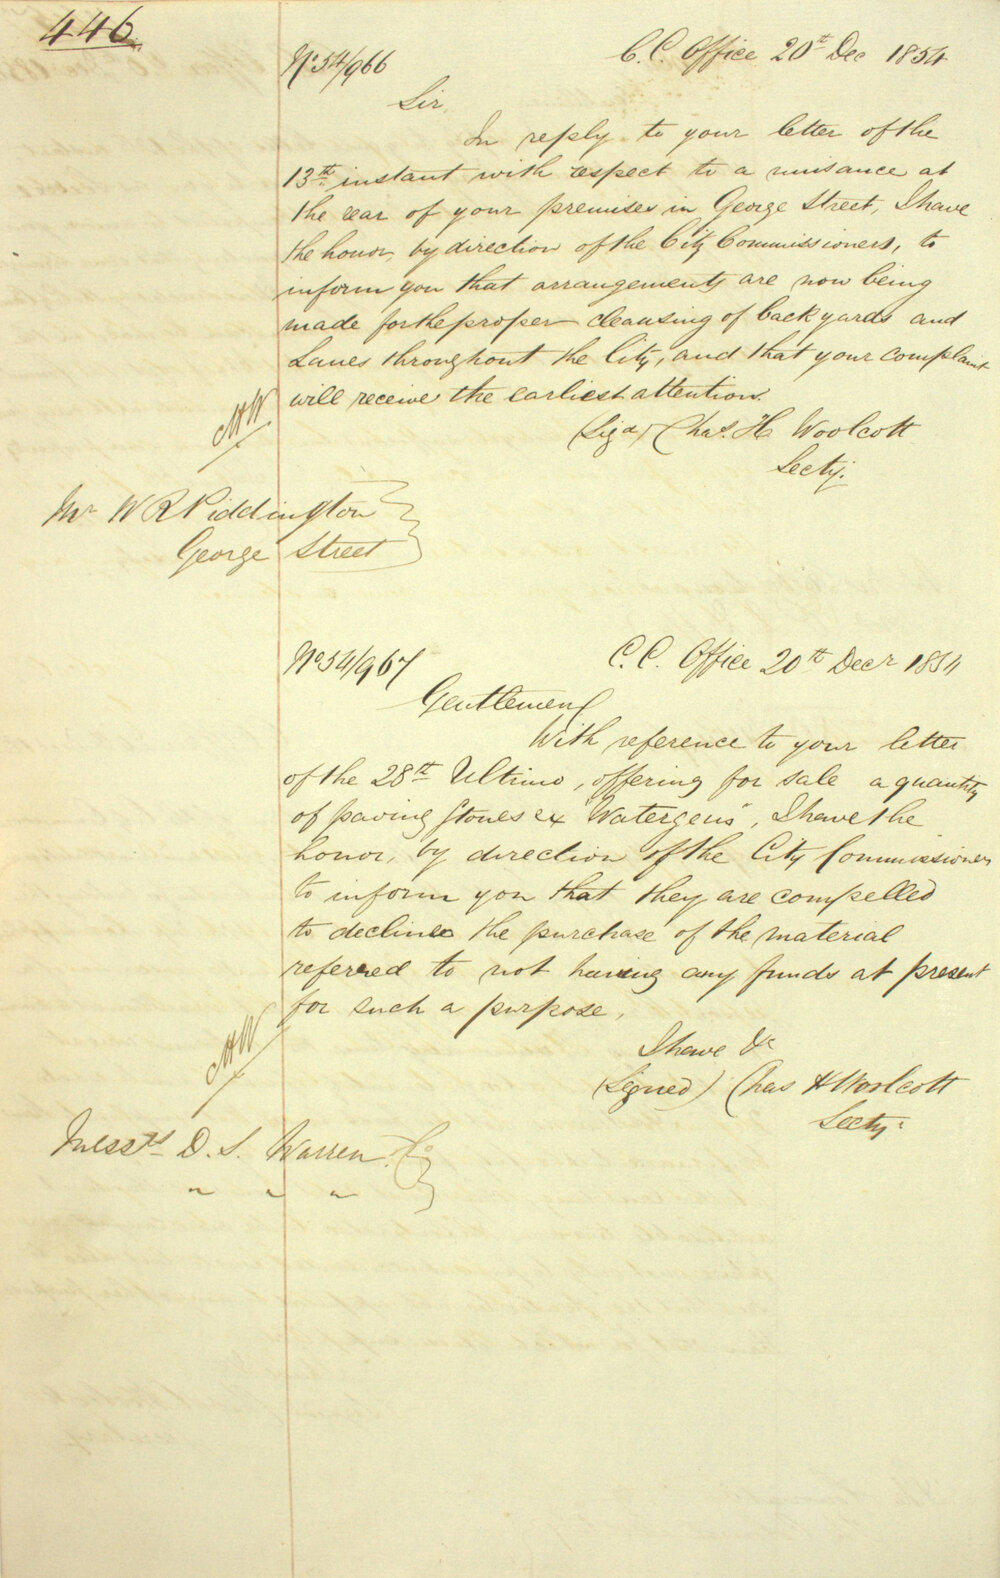 446
No 54/966
C. C. Office 20th Dec 1854
Sir,
In reply to your letter of the
13th instant with respect to a nuisance at
the rear of your premises in George Street, I have
the honor, by direction of the City Commissioners, to
inform you that arrangements are now being
made for the proper cleansing of back yards and
Lanes throughout the City, and that your complaint
will receive the earliest attention.
(Sigd) Chas. H Woolcott
Secty.
Mr W R Piddington
George Street
No 54/967
C. C. Office 20th Decr 1854
Gentlemen
With reference to your letter
of the 28th Ultimo, offering for sale a quantity
of paving stones ex "Watergeus", I have the
honor, by direction of the City Commissioners
to inform you that they are compelled
to decline the purchase of the material
referred to not having any funds at present
for such a purpose.
I have &c
(Signed) Chas H Woolcott
Secty.
Messrs D. S. Warren Co
" " "